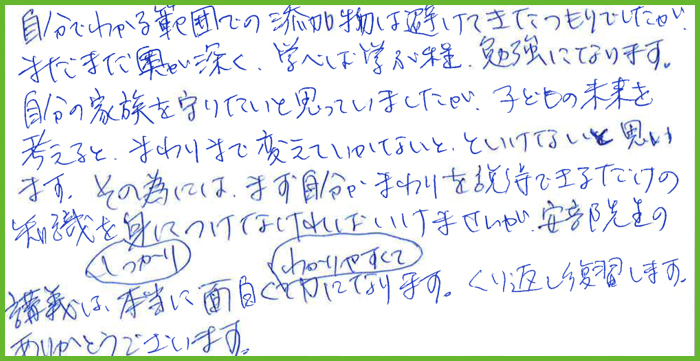 自分でわかる範囲での添加物は避けてきたつもりでしたが、
まだまだ奥が深く、学べば学ぶ程、勉強になります。
自分の家族を守りたいと思っていましたが、子どもの未来を
考えると、まわりまで変えていかないと、といけないと思い
ます。その為には、まず自分が、まわりを説得できるだけの
知識を身につけなければいけませんが、安部先生の
しっかり わかりやすくて
講義は、本当に面白くてためになります。くり返し復習します。
ありがとうございます。